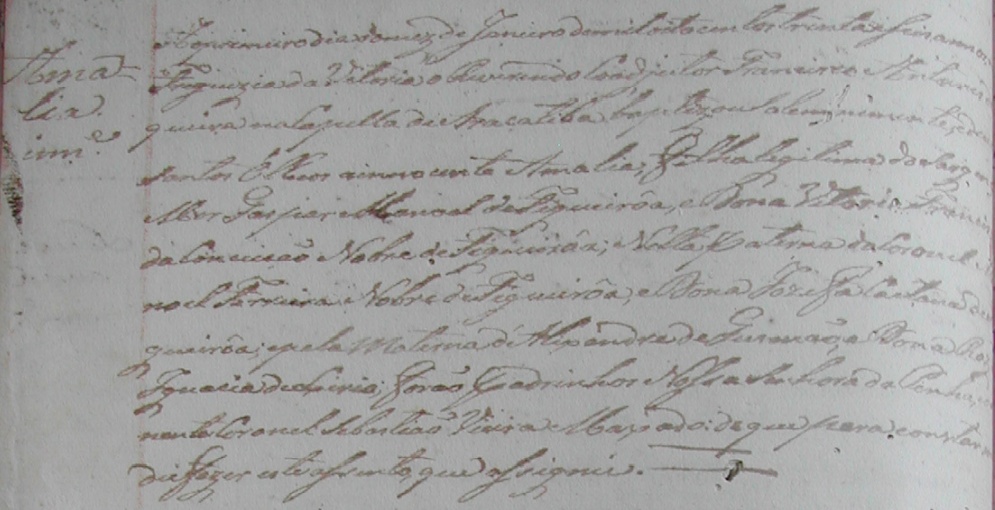 Ama
lia
inn.e
Ao primeiro dia do mez de Janeiro de mil oito centos trinta e seis annos
Freguezia da Victoria o Reverendo Coadjutor Francisco Antonio
queira na Capella de Araçatiba baptizou solemnemente e deu
santos Oleos a innocente Amalia, filha legitima do Sargen
Mor Gaspar Manoel de Figueirôa, e Dona Victoria Francis
da Conceição Nobre de Figueirôa; Netta Paterna do Coronel
noel Ferreira Nobre de Figueirôa, e Dona Jozefa Caetana de
gueirôa; e pela Materna de Alexandre de Gusmão, e Dona
Ignacia de; forão Padrinhos Nossa Senhora da Penha, e
nente Coronel Sebastião Vieira Maxado: de que para constar
diz fazer este assento, que assignei.